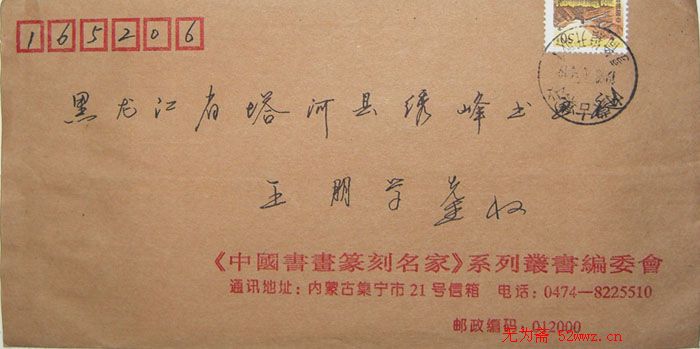 165206
黑龙江省塔河县绣峰书画
王朋学 收
《中國書畫篆刻名家》系列叢書編委會
通讯地址：内蒙古集宁市21号信箱 电话：0474—8225510
邮政编码：012000
无为斋 52wwz.cn